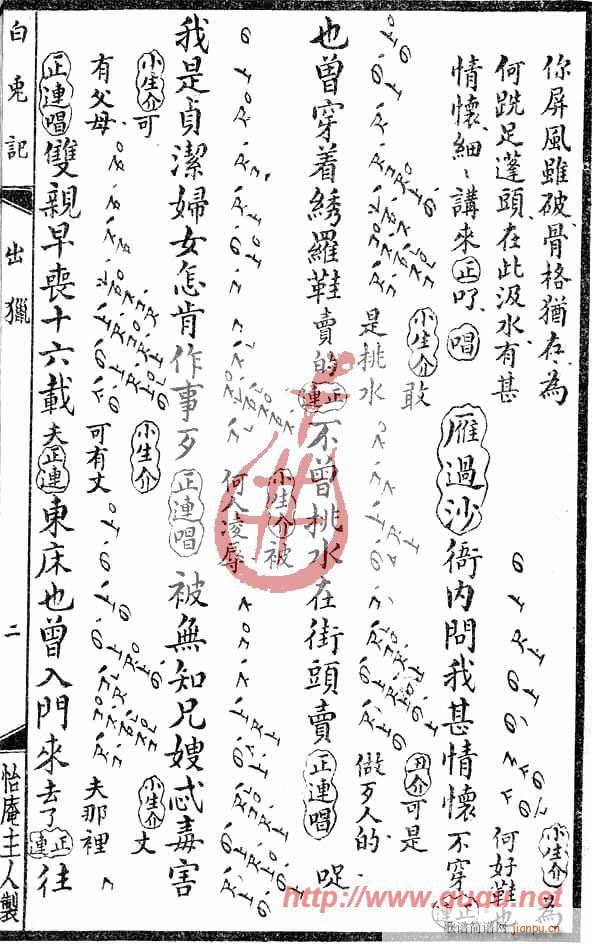 你屏風雖破骨格猶存為
何跣足蓬頭在此汲水有甚
情懷細丶講來 正 吖 唱 雁過沙 衙內問我甚情懷
小生介 為
何好鞋
不穿
小生介 敢
是挑水
丑介 可是
做歹人的
也曾穿着綉羅鞋賣的 正連 不曾挑水在街頭賣 正連唱 哫
小生介 被
何人凌辱
我是貞潔婦女怎肯作事歹 正連唱 被無知兄嫂忒毒害
小生介 可
有父母
小生介
可有丈
夫
小生介 丈
夫那裡
正連唱 雙親早喪十六載 正連 東床也曾入門來去了 正連 往
白兎記
出獵
二
怡庵主人製
http://www.guqu.net
歌谱简谱网
jianpu.cn